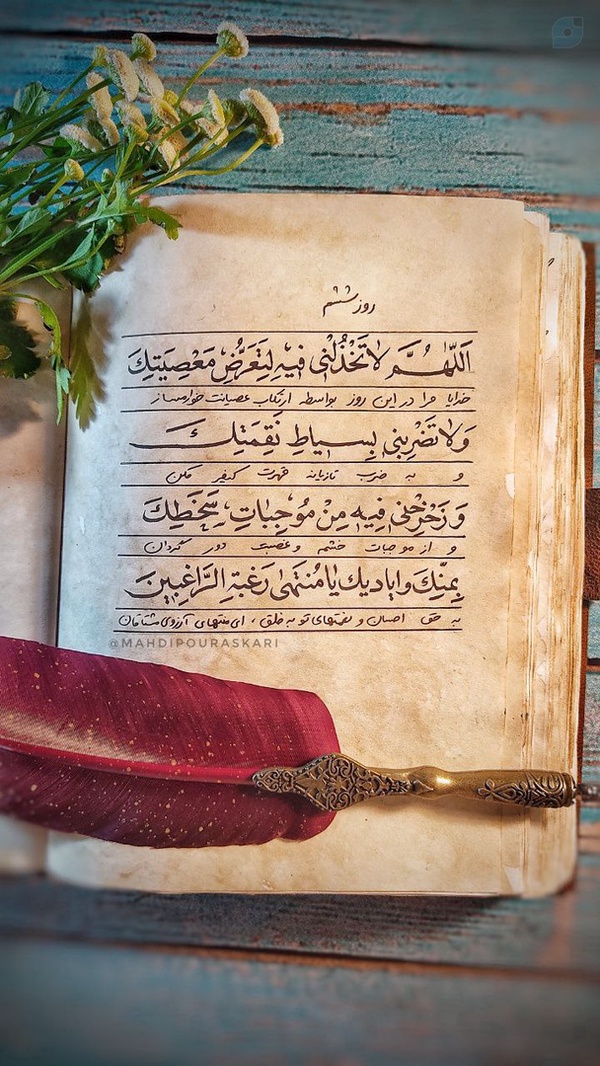 روز ششم
اَللّهُمَّ لا تَخْذُلْنی فیهِ لِتَعَرُّضِ مَعْصِیَتِکَ
خدایا مرا در این روز بواسطه ارتکاب عصیانت خوار مساز
وَلا تَضْرِبْنی بِسیاطِ نَقِمَتِکَ
و به ضرب تازیانه قهرت کیفر مکن
وَ زَحْزِحْنی فیهِ مِنْ مُوجِباتِ سَخَطِکَ
و از موجبات خشم و غضبت دور گردان
بِمَنِّکَ وَ اَیادیکَ یا مُنْتَهی رَغْبَةِ الرّاغِبینَ
به حق احسان و نعمتهای تو به خلق ، ای منتهای آرزوی مشتاقان
@MAHDIPOURASKARI